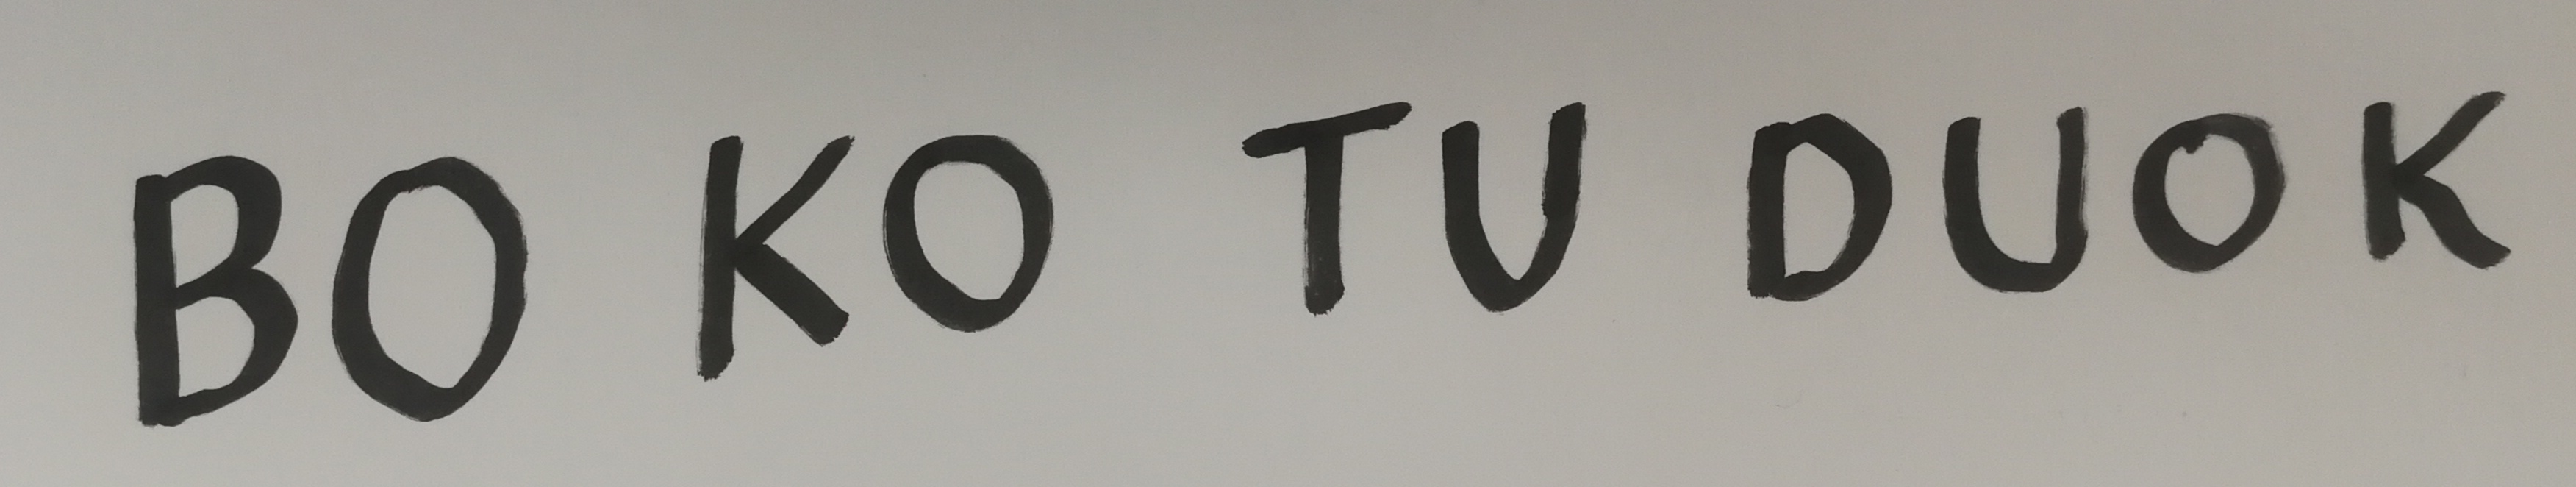 BO KO TU DUOK